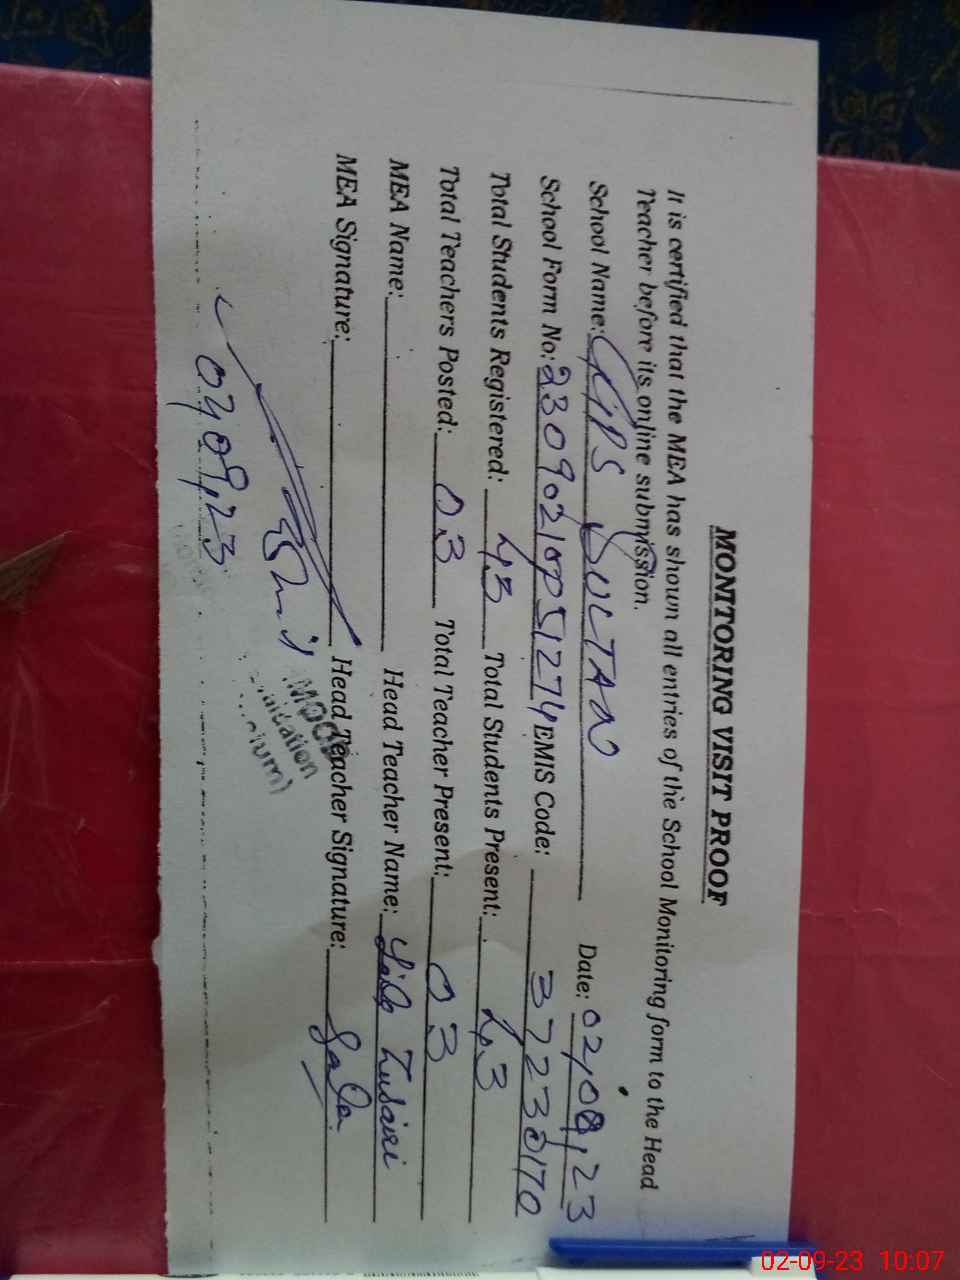 MONITORING VISIT PROOF
It is certified that the MEA has shown all entries of the School Monitoring form to the Head
Teacher before its online submission.
School Name: GGPS SULTAN Date: 02/09/23
School Form No: 230902 1274 EMIS Code: 37230170
Total Students Registered: 43 Total Students Present: 43
Total Teachers Posted: 03 Total Teacher Present: 03
MEA Name: Head Teacher Name:
MEA Signature: Head Teacher Signature:
02/09/23
02-09-23 10:07